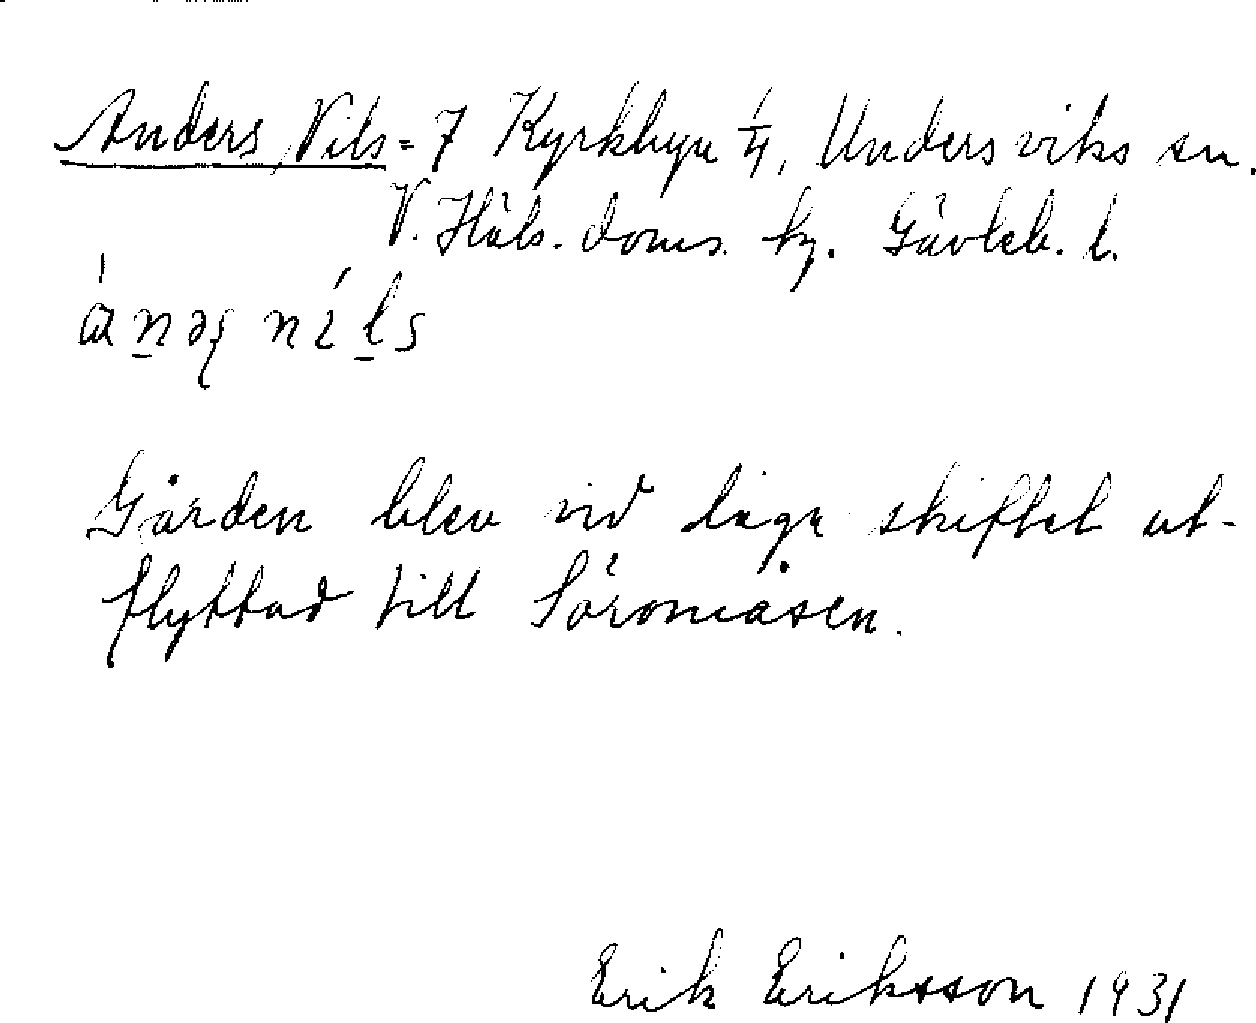 Anders Nils = 7 Kyrkbyn 1/4, Undersviks sn.
V. Häls. doms. hg. Gävleb. l.
Gården blev vid laga skiftet ut-
flyttad till Söromåsen.
Erik Eriksson 1931